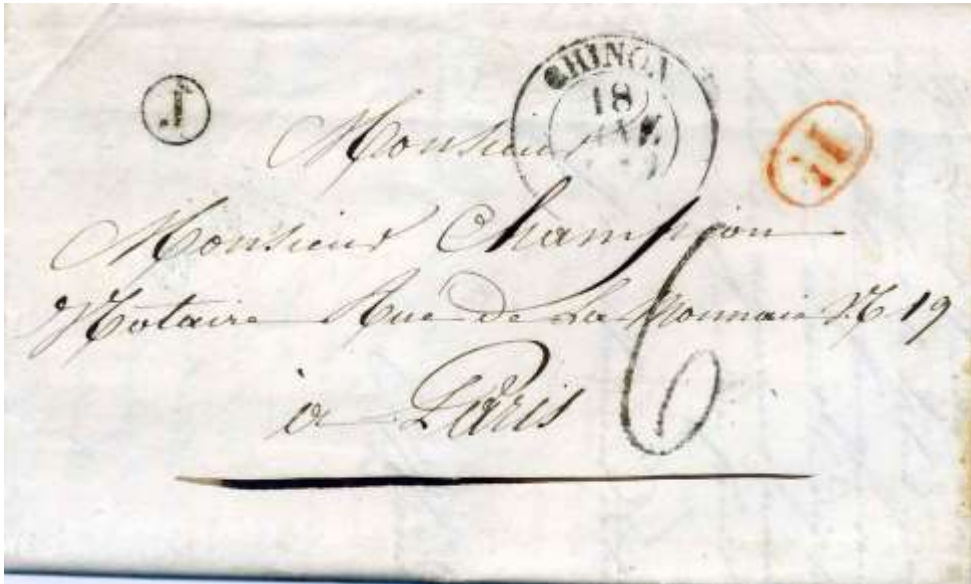 J
CHINON
18
JANV.
Monsieur
Monsieur Champion
Notaire Rue de La Monnaie N 19
à Paris
6